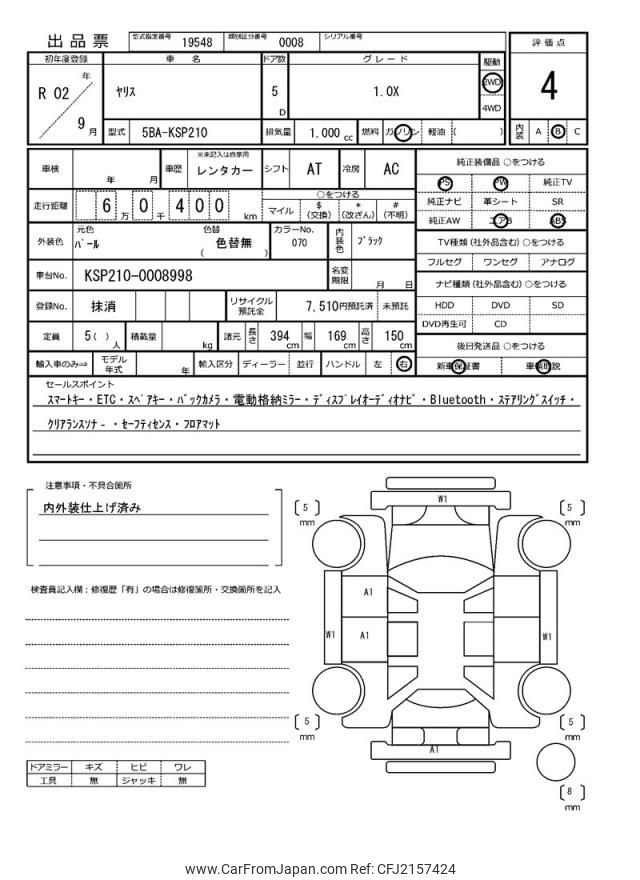 出品票 型式指定番号 19548 類別区分番号 0008 シリアル番号
評価点
4
内装 A B C
初年度登録 車名 ドア数 グレード 駆動
R 02 年 9 月
ヤリス 5 D 1.0X 2WD 4WD
型式 5BA-KSP210 排気量 1.000 cc 燃料 ガソリン 軽油 ( )
車検 年 月 車歴 ※未記入は自家用 レンタカー シフト AT 冷房 AC
走行距離 6 万 0 千 4 0 0 km ○をつける
マイル $ (交換) * (改ざん) # (不明)
外装色 元色 パール 色替 色替無 ( ) カラーNo. 070 内装色 ブラック
車台No. KSP210-0008998 名変期限 月 日
登録No. 抹消 リサイクル預託金 7,510円預託済 未預託
定員 5( ) 人 積載量 kg 諸元 長さ 394 cm 幅 169 cm 高さ 150 cm
輸入車のみ⇒ モデル年式 年 輸入区分 ディーラー 並行 ハンドル 左 右
純正装備品 ○をつける
PS PW 純正TV
純正ナビ 革シート SR
純正AW エアB ABS
TV種類(社外品含む) ○をつける
フルセグ ワンセグ アナログ
ナビ種類(社外品含む) ○をつける
HDD DVD SD
DVD再生可 CD
後日発送品 ○をつける
新車保証書 車輌取説
セールスポイント
スマートキー・ETC・スペアキー・バックカメラ・電動格納ミラー・ディスプレイオーディオナビ・Bluetooth・ステアリングスイッチ・
クリアランスソナ-・セーフティセンス・フロアマット
注意事項・不具合箇所
内外装仕上げ済み
検査員記入欄：修復歴「有」の場合は修復箇所・交換箇所を記入
ドアミラー キズ ヒビ ワレ
工具 無 ジャッキ 無
W1
5 mm
5 mm
A1
A1
W1
W1
5 mm
5 mm
A1
8 mm
www.CarFromJapan.com Ref: CFJ2157424